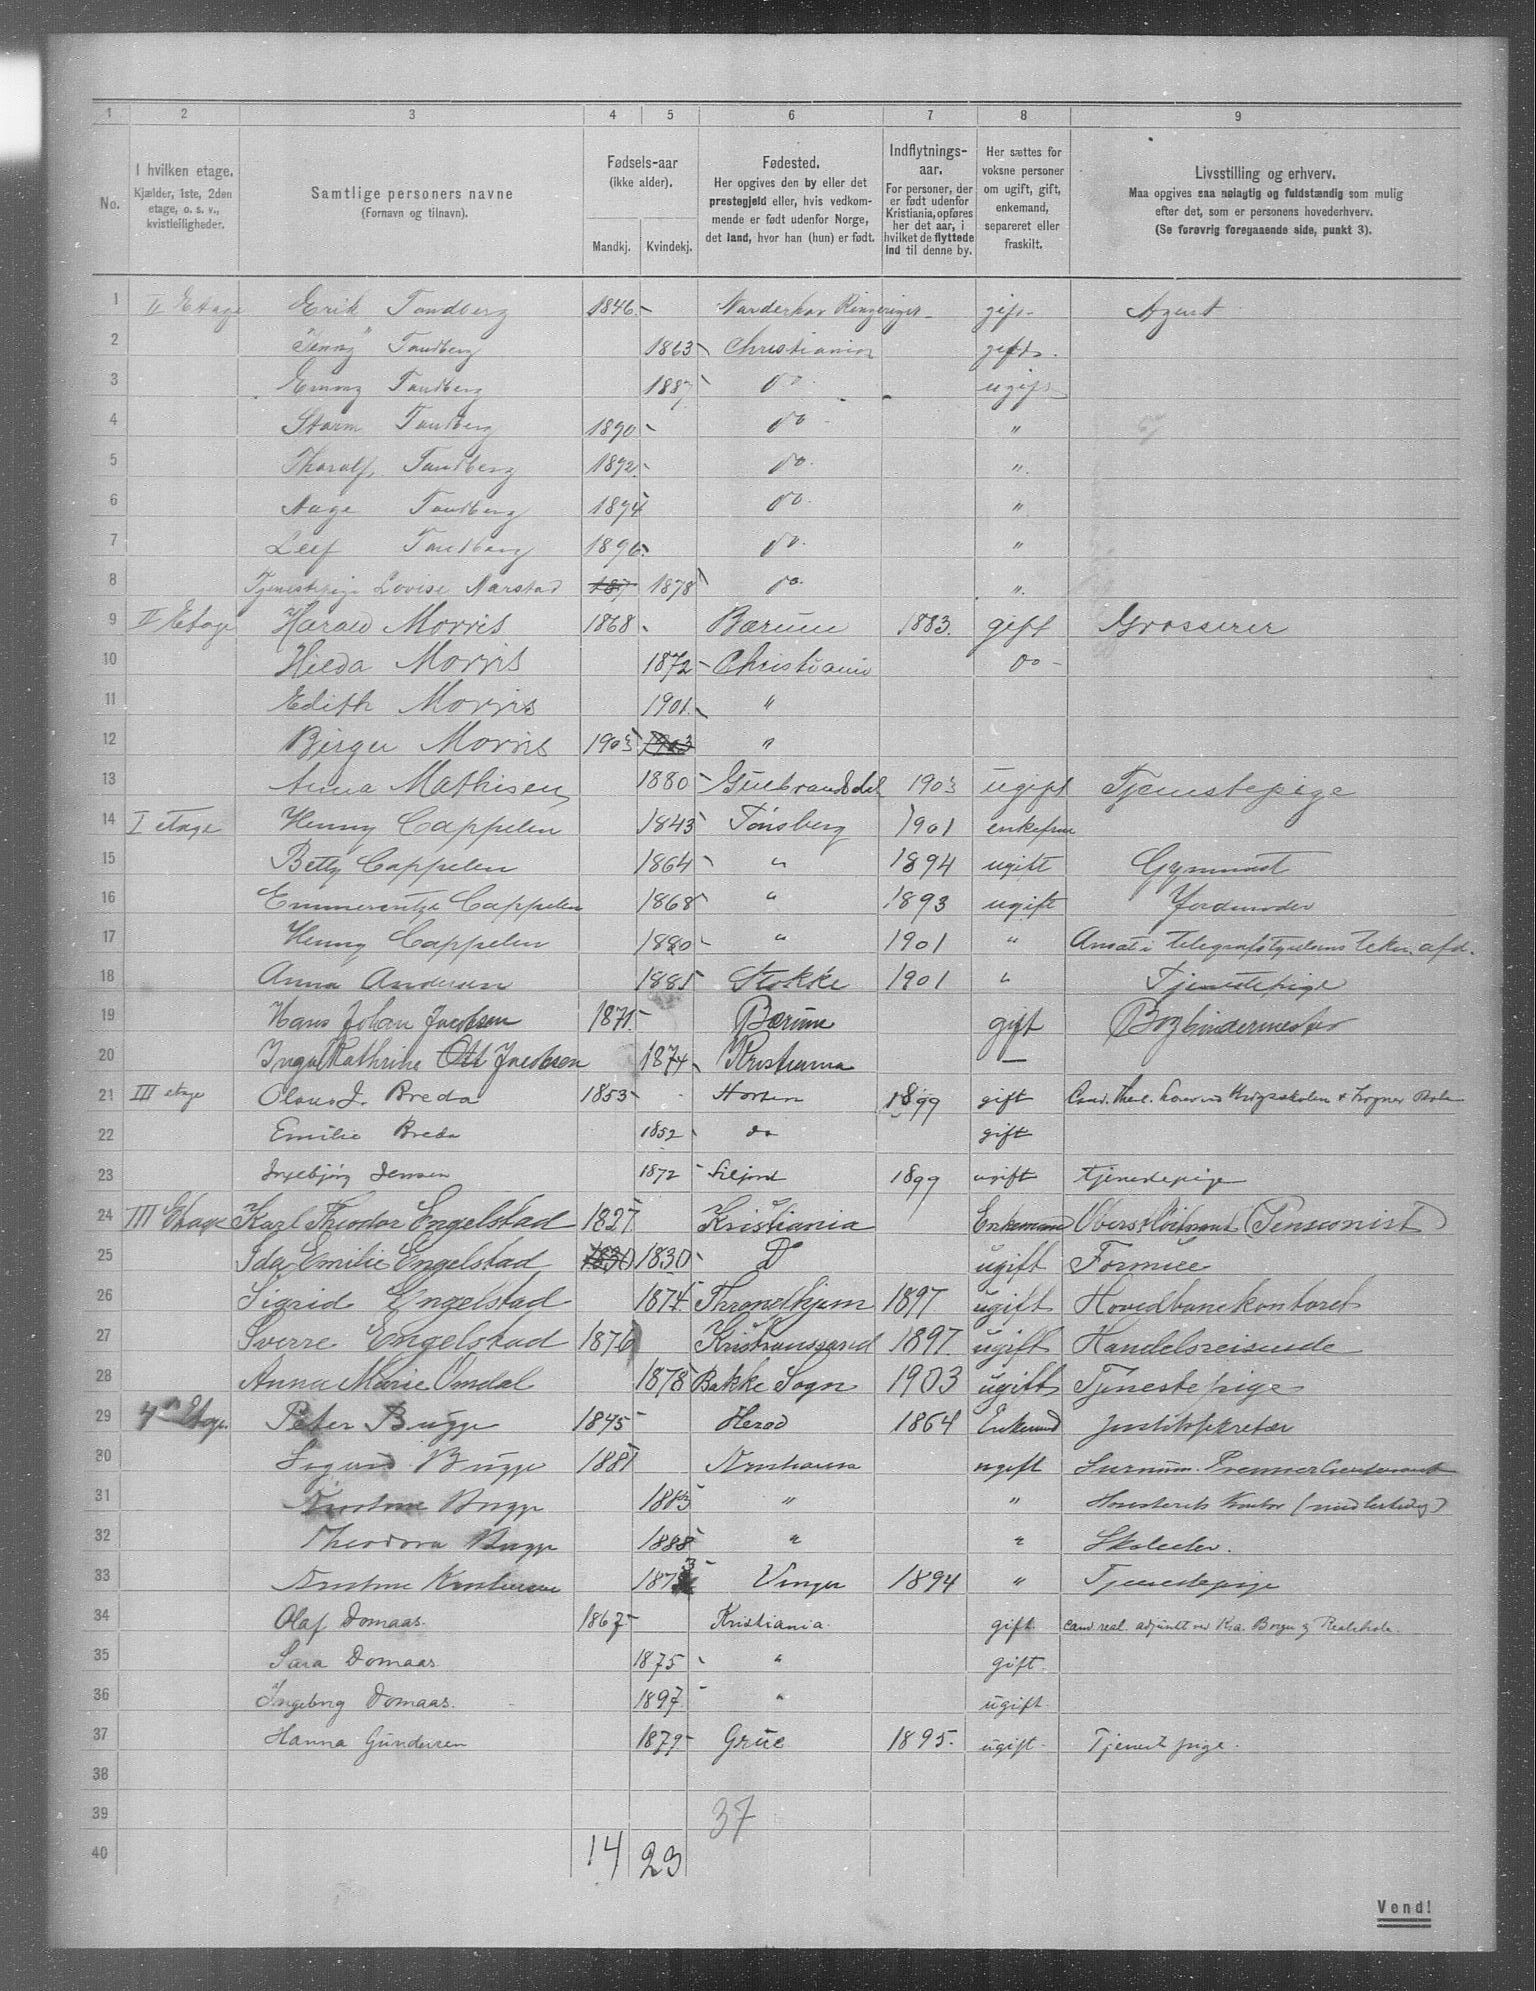 1 2 3 4 5 6 7 8 9
No.
I hvilken etage.
Kjælder, 1ste, 2den etage, o. s. v., kvistleiligheder.
Samtlige personers navne
(Fornavn og tilnavn).
Fødsels-aar
(ikke alder).
Mandkj. Kvindekj.
Fødested.
Her opgives den by eller det prestegjeld eller, hvis vedkommende er født udenfor Norge, det land, hvor han (hun) er født.
Indflytnings-aar.
For personer, der er født udenfor Kristiania, opføres her det aar, i hvilket de flyttede ind til denne by.
Her sættes for voksne personer om ugift, gift, enkemand, separeret eller fraskilt.
Livsstilling og erhverv.
Maa opgives saa nøiagtig og fuldstændig som mulig efter det, som er personens hovederhverv.
(Se forøvrig foregaaende side, punkt 3).
1 II Etage Erik Tandberg 1846 gift Agent
2 "Jenny" Tandberg 1863 Christiania gift
3 Emmy Tandberg 1887 do ugift
4 Storm Tandberg 1890 do "
5 Tharalf Tandberg 1892 do "
6 Aage Tandberg 1894 do "
7 Leif Tandberg 1896 do "
8 Tjenestepige Lovise Aarstad 187 1878 do "
9 II Etage Harald Morris 1868 Bærum 1883. gift Grosserer
10 Hilda Morris 1872 Christiania do
11 Edith Morris 1901 "
12 Birger Morris 1903 1903 "
13 Anna Mathisen 1880 Gulbrandsdal 1903 ugift Tjenestepige
14 I etage Henny Cappelen 1843 Tønsberg 1901 enkefrue
15 Betty Cappelen 1864 " 1894 ugift Gymnast
16 Emmerentze Cappelen 1868 " 1893 ugift Jordmoder
17 Henny Cappelen 1880 " 1901 " Ansat i Telegrafstyrelsens tekn. afd.
18 Anna Andersen 1885 Stokke 1901 " Tjenestepige
19 Hans Johan Jacobsen 1871 Bærum gift Bogbindermester
20 Inga Kathrine Ott Jacobsen 1874 Kristiania —
21 III etage Olaus J. Breda 1853 Horten 1899 gift Cand. Theol. Lærer ved Krigsskolen & Frogner Skole
22 Emilie Breda 1852 do gift
23 Ingebjørg Jensen 1872 Siljord 1899 ugift tjenestepige
24 III Etage Karl Theodor Engelstad 1827 Kristiania Enkemand Oberstløitnant (Pensionist)
25 Ida Emilie Engelstad 1830 1830 Do ugift Formue
26 Sigrid Engelstad 1874 Throndhjem 1897 ugift Hovedbanekontoret
27 Sverre Engelstad 1876 Kristianssand 1897 ugift Handelsreisende
28 Anna Marie Omdal 1878 Bakke Sogn 1903 ugift Tjenestepige
29 4de Etage Peter Bugge 1845 Herød 1864 Enkemd Justitssekretær
30 Sigurd Bugge 1881 Kristiania ugift Surnum. Premierlieutenant
31 Kristine Bugge 1883 " " Kontor (midlertidig)
32 Theodora Bugge 1888 " " Skoleelev.
33 Kristine Kristiansen 1873 Vinger 1894 " Tjenestepige
34 Olaf Domaas. 1867 Kristiania. gift cand real. adjunkt ved Kra. Borger og Realskole.
35 Sara Domaas 1875 " gift.
36 Ingeborg Domaas. 1897 " ugift.
37 Hanna Gundersen 1879 Grue 1895. ugift. Tjenestpige.
38
39 37
40 14 23
Vend!